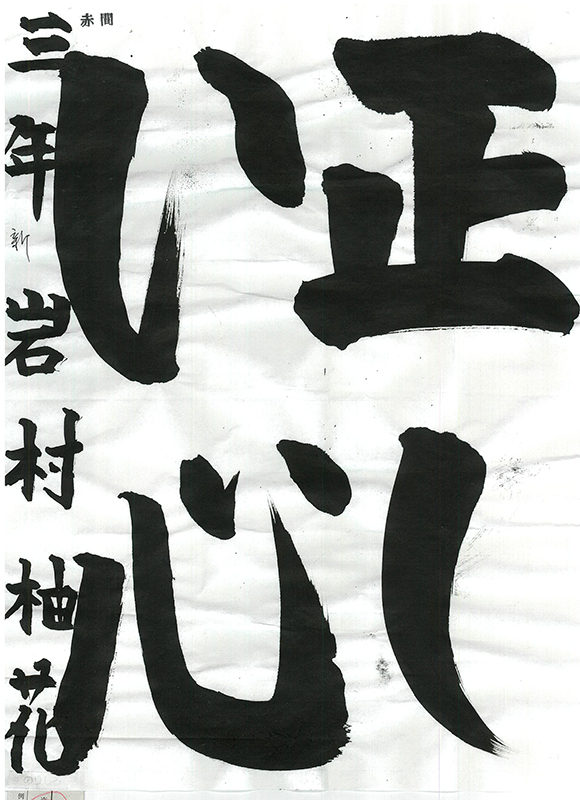 正し
い心
赤間
三年新岩村柚花